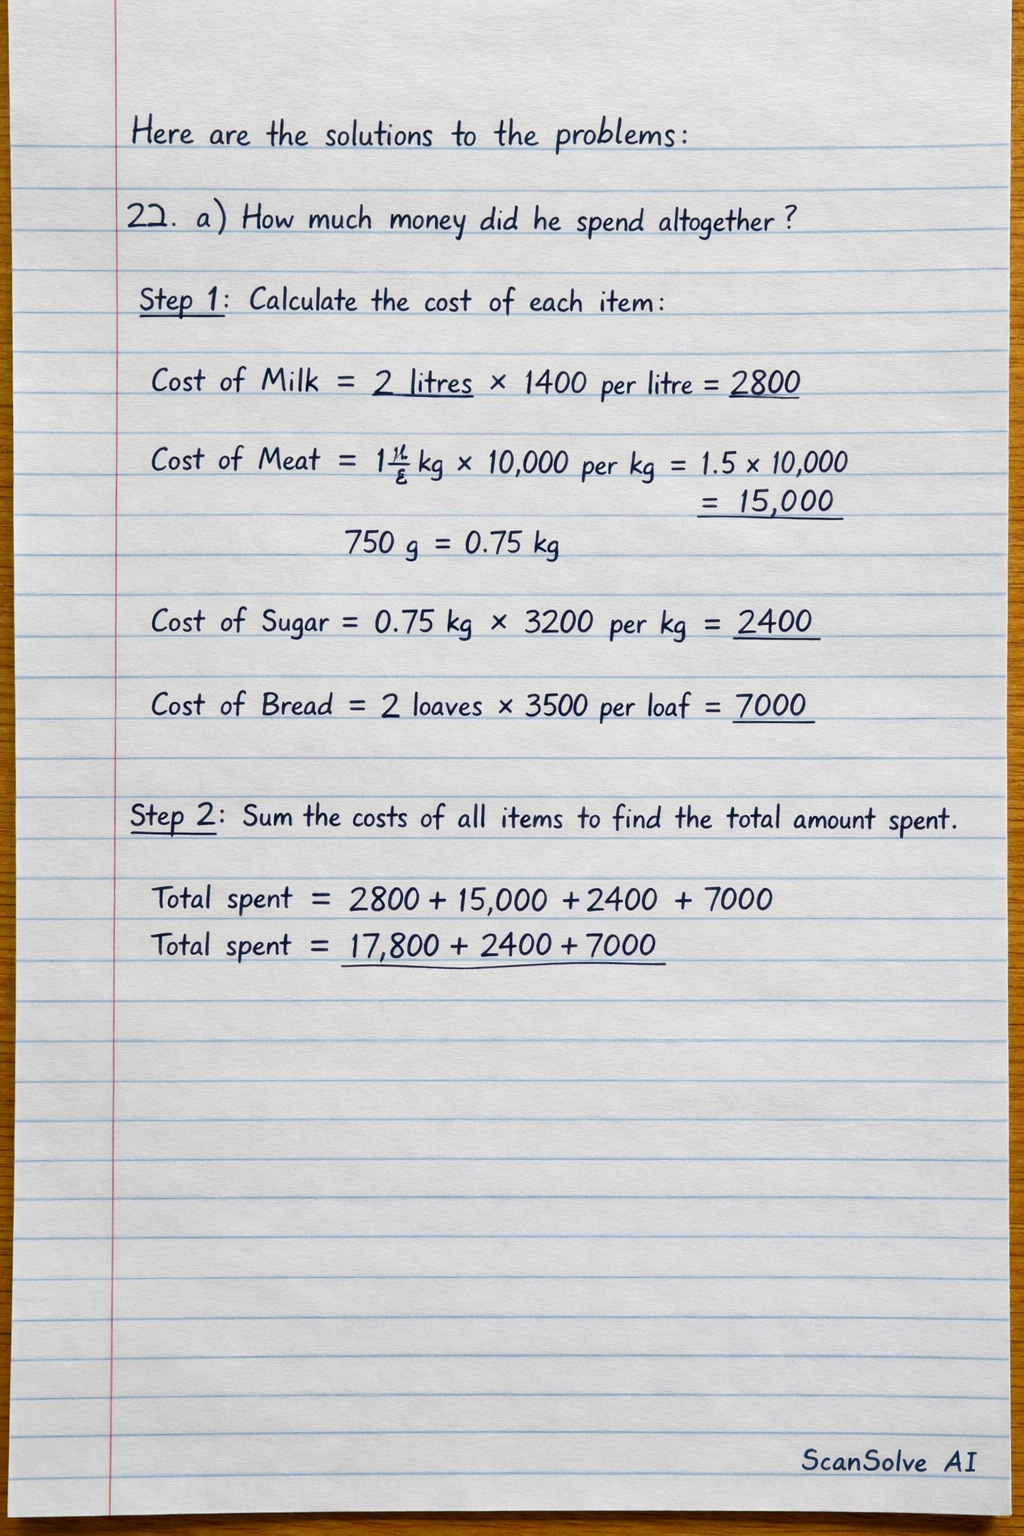 Here are the solutions to the problems:
22. a) How much money did he spend altogether?
Step 1: Calculate the cost of each item:
Cost of Milk = 2 litres × 1400 per litre = 2800
Cost of Meat = 1 kg × 10,000 per kg = 1.5 × 10,000
= 15,000
750 g = 0.75 kg
Cost of Sugar = 0.75 kg × 3200 per kg = 2400
Cost of Bread = 2 loaves × 3500 per loaf = 7000
Step 2: Sum the costs of all items to find the total amount spent.
Total spent = 2800 + 15,000 + 2400 + 7000
Total spent = 17,800 + 2400 + 7000
ScanSolve AI